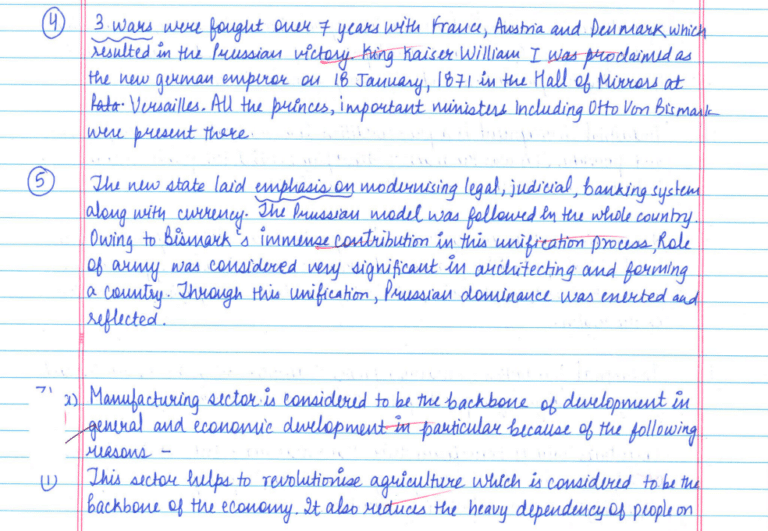 ④ 3 wars were fought over 7 years with France, Austria and Denmark, which
resulted in the Prussian victory. King Kaiser William I was proclaimed as
the new german emperor on 18 January, 1871 in the Hall of Mirrors at
Versailles. All the princes, important ministers Including Otto Von Bismark
were present there.
⑤ The new state laid emphasis on modernising legal, judicial, banking system
along with currency. The Prussian model was followed in the whole country.
Owing to Bismark's immense contribution in this unification process, Role
of army was considered very significant in architecting and forming
a country. Through this unification, Prussian dominance was exerted and
reflected.
Manufacturing sector is considered to be the backbone of development in
general and economic development in particular because of the following
reasons –
(1) This sector helps to revolutionise agriculture which is considered to be the
backbone of the economy. It also reduces the heavy dependency of people on